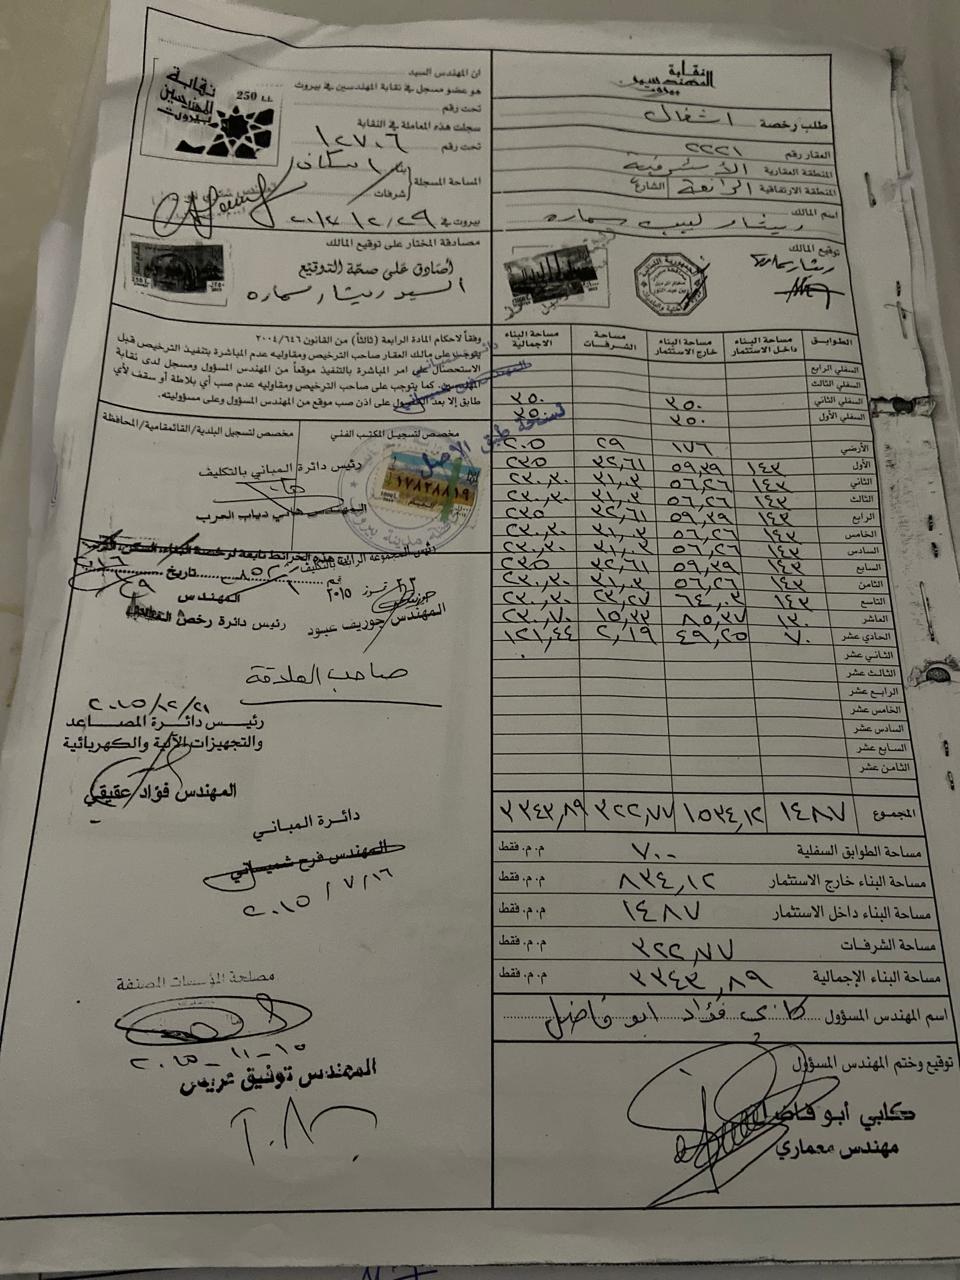 نقابة
المهندسين
بيروت
طلب رخصة اشغال
العقار رقم ٢٢٢١
المنطقة العقارية الأشرفية
المنطقة الارتفاقية الرابعة الشارع
اسم المالك ريشار لبيب سماره
توقيع المالك
ان المهندس السيد
هو عضو مسجل في نقابة المهندسين في بيروت
تحت رقم
سجلت هذه المعاملة في النقابة
تحت رقم ١٢٧٠٦
المساحة المسجلة
بناء
شرفات
بيروت في ٢٠١٢/١٢/٢٩
250 L.L.
نقابة
المهندسين
بيروت
مصادقة المختار على توقيع المالك
أصادق على صحة التوقيع
السيد ريشار سماره
وفقاً لاحكام المادة الرابعة (ثالثاً) من القانون ٢٠٠٤/٦٤٦
يتوجب على مالك العقار صاحب الترخيص ومقاوليه عدم المباشرة بتنفيذ الترخيص قبل
الاستحصال على امر المباشرة بالتنفيذ موقعاً من المهندس المسؤول ومسجل لدى نقابة
المهندسين. كما يتوجب على صاحب الترخيص ومقاوليه عدم صب أي بلاطة أو سقف لأي
طابق إلا بعد الحصول على اذن صب موقع من المهندس المسؤول وعلى مسؤوليته.
مخصص لتسجيل المكتب الفني
مخصص لتسجيل البلدية/القائمقامية/المحافظة
نسخة طبق الأصل
١٧٨٣٨٨١٩
رئيس دائرة المباني بالتكليف
المهندس هاني دياب العرب
رئيس المجموعة الرابعة بالتكليف
تموز ٢٠١٥
المهندس جوزيف عبود
تاريخ
المهندس
رئيس دائرة رخص
صاحب العلاقة
٢٠١٥/١٢/٢١
رئيس دائرة المصاعد
والتجهيزات الآلية والكهربائية
المهندس فؤاد عقيقي
دائرة المباني
المهندس فرح شميساني
٢٠١٥/٧/١٦
مصلحة المؤسسات المصنفة
٢٠١٥-١١-١٥
المهندس توفيق عريس
الطوابق مساحة البناء داخل الاستثمار مساحة البناء خارج الاستثمار مساحة الشرفات مساحة البناء الاجمالية
السفلي الرابع
السفلي الثالث
السفلي الثاني ٣٥٠ ٣٥٠
السفلي الأول ٣٥٠ ٣٥٠
الأرضي ١٧٦ ٢٩ ٢٠٥
الأول ١٤٣ ٥٩,٣٩ ٣٢,٦١ ٢٣٥
الثاني ١٤٣ ٥٦,٢٦ ٣١,٠٣ ٢٣٠,٣٠
الثالث ١٤٣ ٥٦,٢٦ ٣١,٠٣ ٢٣٠,٣٠
الرابع ١٤٣ ٥٩,٣٩ ٣٢,٦١ ٢٣٥
الخامس ١٤٣ ٥٦,٢٦ ٣١,٠٣ ٢٣٠,٣٠
السادس ١٤٣ ٥٦,٢٦ ٣١,٠٣ ٢٣٠,٣٠
السابع ١٤٣ ٥٩,٣٩ ٣٢,٦١ ٢٣٥
الثامن ١٤٣ ٥٦,٢٦ ٣١,٠٣ ٢٣٠,٣٠
التاسع ١٤٣ ٦٤,٠٣ ٢٣,٢٧ ٢٣٠,٣٠
العاشر ١٣٠ ٨٥,٣٧ ١٥,٣٣ ٢٣٠,٧٠
الحادي عشر ٧٠ ٤٩,٢٥ ٢,١٩ ١٢١,٤٤
الثاني عشر
الثالث عشر
الرابع عشر
الخامس عشر
السادس عشر
السابع عشر
الثامن عشر
المجموع ١٤٨٧ ١٥٣٤,١٢ ٣٢٢,٧٧ ٣٣٤٣,٨٩
مساحة الطوابق السفلية ٧٠٠ م.م. فقط
مساحة البناء خارج الاستثمار ٨٣٤,١٢ م.م. فقط
مساحة البناء داخل الاستثمار ١٤٨٧ م.م. فقط
مساحة الشرفات ٣٢٢,٧٧ م.م. فقط
مساحة البناء الإجمالية ٣٣٤٣,٨٩ م.م. فقط
اسم المهندس المسؤول فؤاد ابو فاضل
توقيع وختم المهندس المسؤول
كلبي أبو فاضل
مهندس معماري